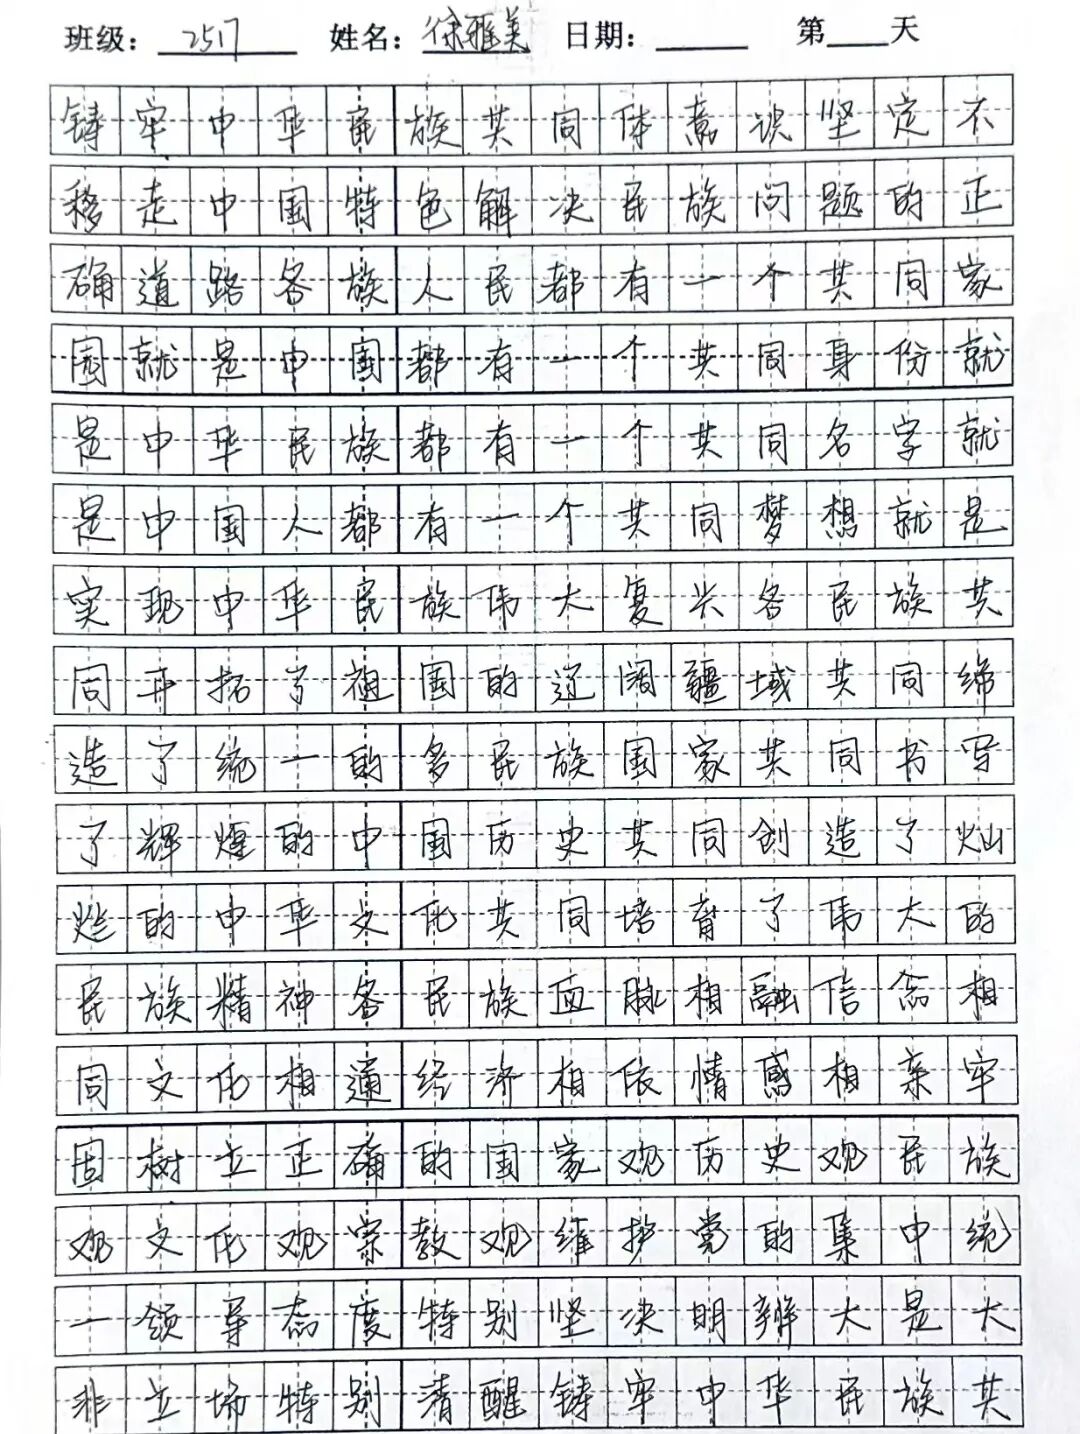 班级: 2517 姓名: 徐雅美 日期: 第 天
铸牢中华民族共同体意识坚定不
移走中国特色解决民族问题的正
确道路各族人民都有一个共同家
园就是中国都有一个共同身份就
是中华民族都有一个共同名字就
是中国人都有一个共同梦想就是
实现中华民族伟大复兴各民族共
同开拓了祖国的辽阔疆域共同缔
造了统一的多民族国家共同书写
了辉煌的中国历史共同创造了灿
烂的中华文化共同培育了伟大的
民族精神各民族血脉相融信念相
同文化相通经济相依情感相亲牢
固树立正确的国家观历史观民族
观文化观宗教观维护党的集中统
一领导态度特别坚决明辨大是大
非立场特别清醒铸牢中华民族共